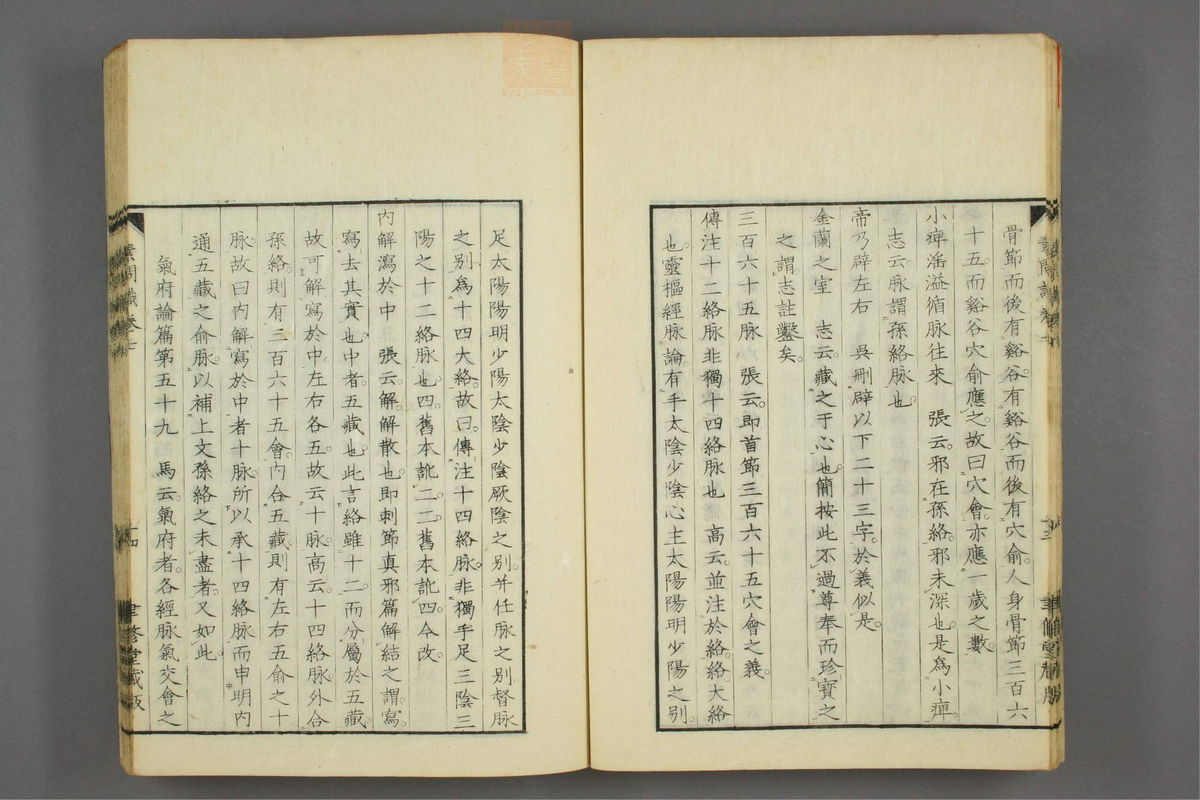 骨節而後有谿谷有谿谷而後有穴俞人身骨節三百六
十五而谿谷穴俞應之故曰穴會亦應一歲之數
小痺淫溢循脉往來　張云邪在孫絡邪未深也是爲小痺
志云脉謂孫絡脉也
帝乃辟左右　吳刪辟以下二十三字於義似是
金蘭之室　志云藏之于心也簡按此不過尊奉而珍寶之
之謂志註鑿矣
三百六十五脉　張云即首節三百六十五穴會之義
傳注十二絡脉非獨十四絡脉也　高云並注於絡絡大絡
也靈樞經脉論有手太陰少陰心主太陽陽明少陽之別
足太陽陽明少陽太陰少陰厥陰之別并任脉之別督脉
之別爲十四大絡故曰傳注十四絡脉非獨手足三陰三
陽之十二絡脉也四舊本訛二二舊本訛四今改
內解瀉於中　張云解解散也即刺節真邪篇解結之謂寫
寫去其實也中者五藏也此言絡雖十二而分屬於五藏
故可解寫於中左右各五故云十脉高云十四絡脉外合
孫絡則有三百六十五會內合五藏則有左右五俞之十
脉故曰內解寫於中者十脉所以承十四絡脉而申明內
通五藏之俞脉以補上文孫絡之未盡者又如此
氣府論篇第五十九　馬云氣府者各經脉氣交會之
素問識卷七
十四
聿修堂藏版